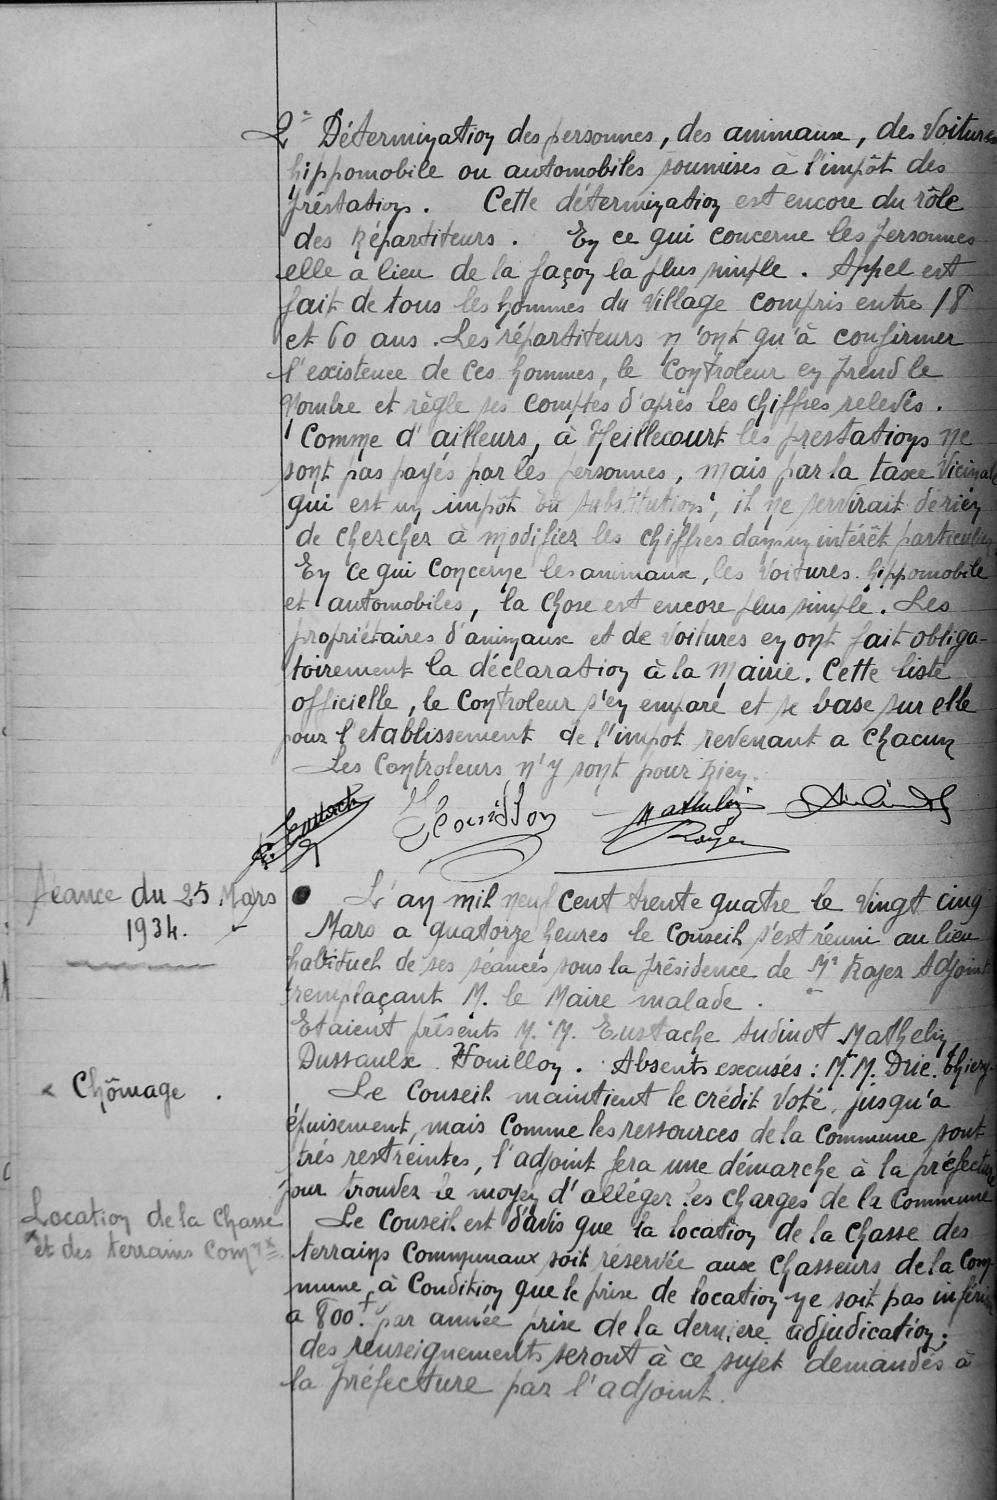 2° Détermination des personnes, des animaux, des voitures
hippomobile ou automobiles soumises à l'impôt des
préstations. Cette détermination est encore du rôle
des Répartiteurs. En ce qui concerne les personnes
elle à lieu de la façon la plus simple. Appel est
fait de tous les hommes du village compris entre 18
et 60 ans. Les répartiteurs n'ont qu'à confirmer
l'existence de ces hommes, le Controleur en prend le
nombre et règle ses comptes d'après les chiffres relevés.
Comme d'ailleurs, à Heillecourt les prestations ne
sont pas payés par les personnes, mais par la taxe vicinale
qui est un impôt ou substitution, il ne servirait de rien
de chercher à modifier les chiffres dans un intérêt particulier
En ce qui concerne les animaux, les voitures hippomobile
et automobiles, la chose est encore plus simple. Les
propriétaires d'animaux et de voitures en ont fait obliga-
toirement la déclaration à la Mairie. Cette liste
officielle, le Controleur s'en empare et se base sur elle
pour l'etablissement de l'impot revenant a chacun
Les Controleurs n'y sont pour rien.
Eustache Houillon Mathelin Audinot
Royer
Séance du 25 Mars
1934.
L'an mil neuf cent trente quatre le vingt cinq
Mars a quatorze heures le Conseil s'est réuni au lieu
habituel de ses séances sous la présidence de Mr Royer Adjoint
remplaçant M. le Maire malade.
Etaient présents M. M. Eustache Audinot Mathelin
Dussaulx Houillon. Absents excusés : M.M. Drie. Thiery
Chômage.
Le Conseil maintient le crédit voté, jusqu'a
épuisement, mais comme les ressources de la commune sont
très restreintes, l'adjoint fera une démarche à la préfecture
pour trouver le moyen d'alléger les charges de la Commune
Location de la Chasse
et des terrains Comnx
Le Conseil est d'avis que la location de la chasse des
terrains Communaux soit réservée aux chasseurs de la Com-
mune à Condition que le prix de location ne soit pas inférieur
a 800f par année prix de la derniere adjudication;
des renseignements seront à ce sujet demandés à
la préfecture par l'adjoint.